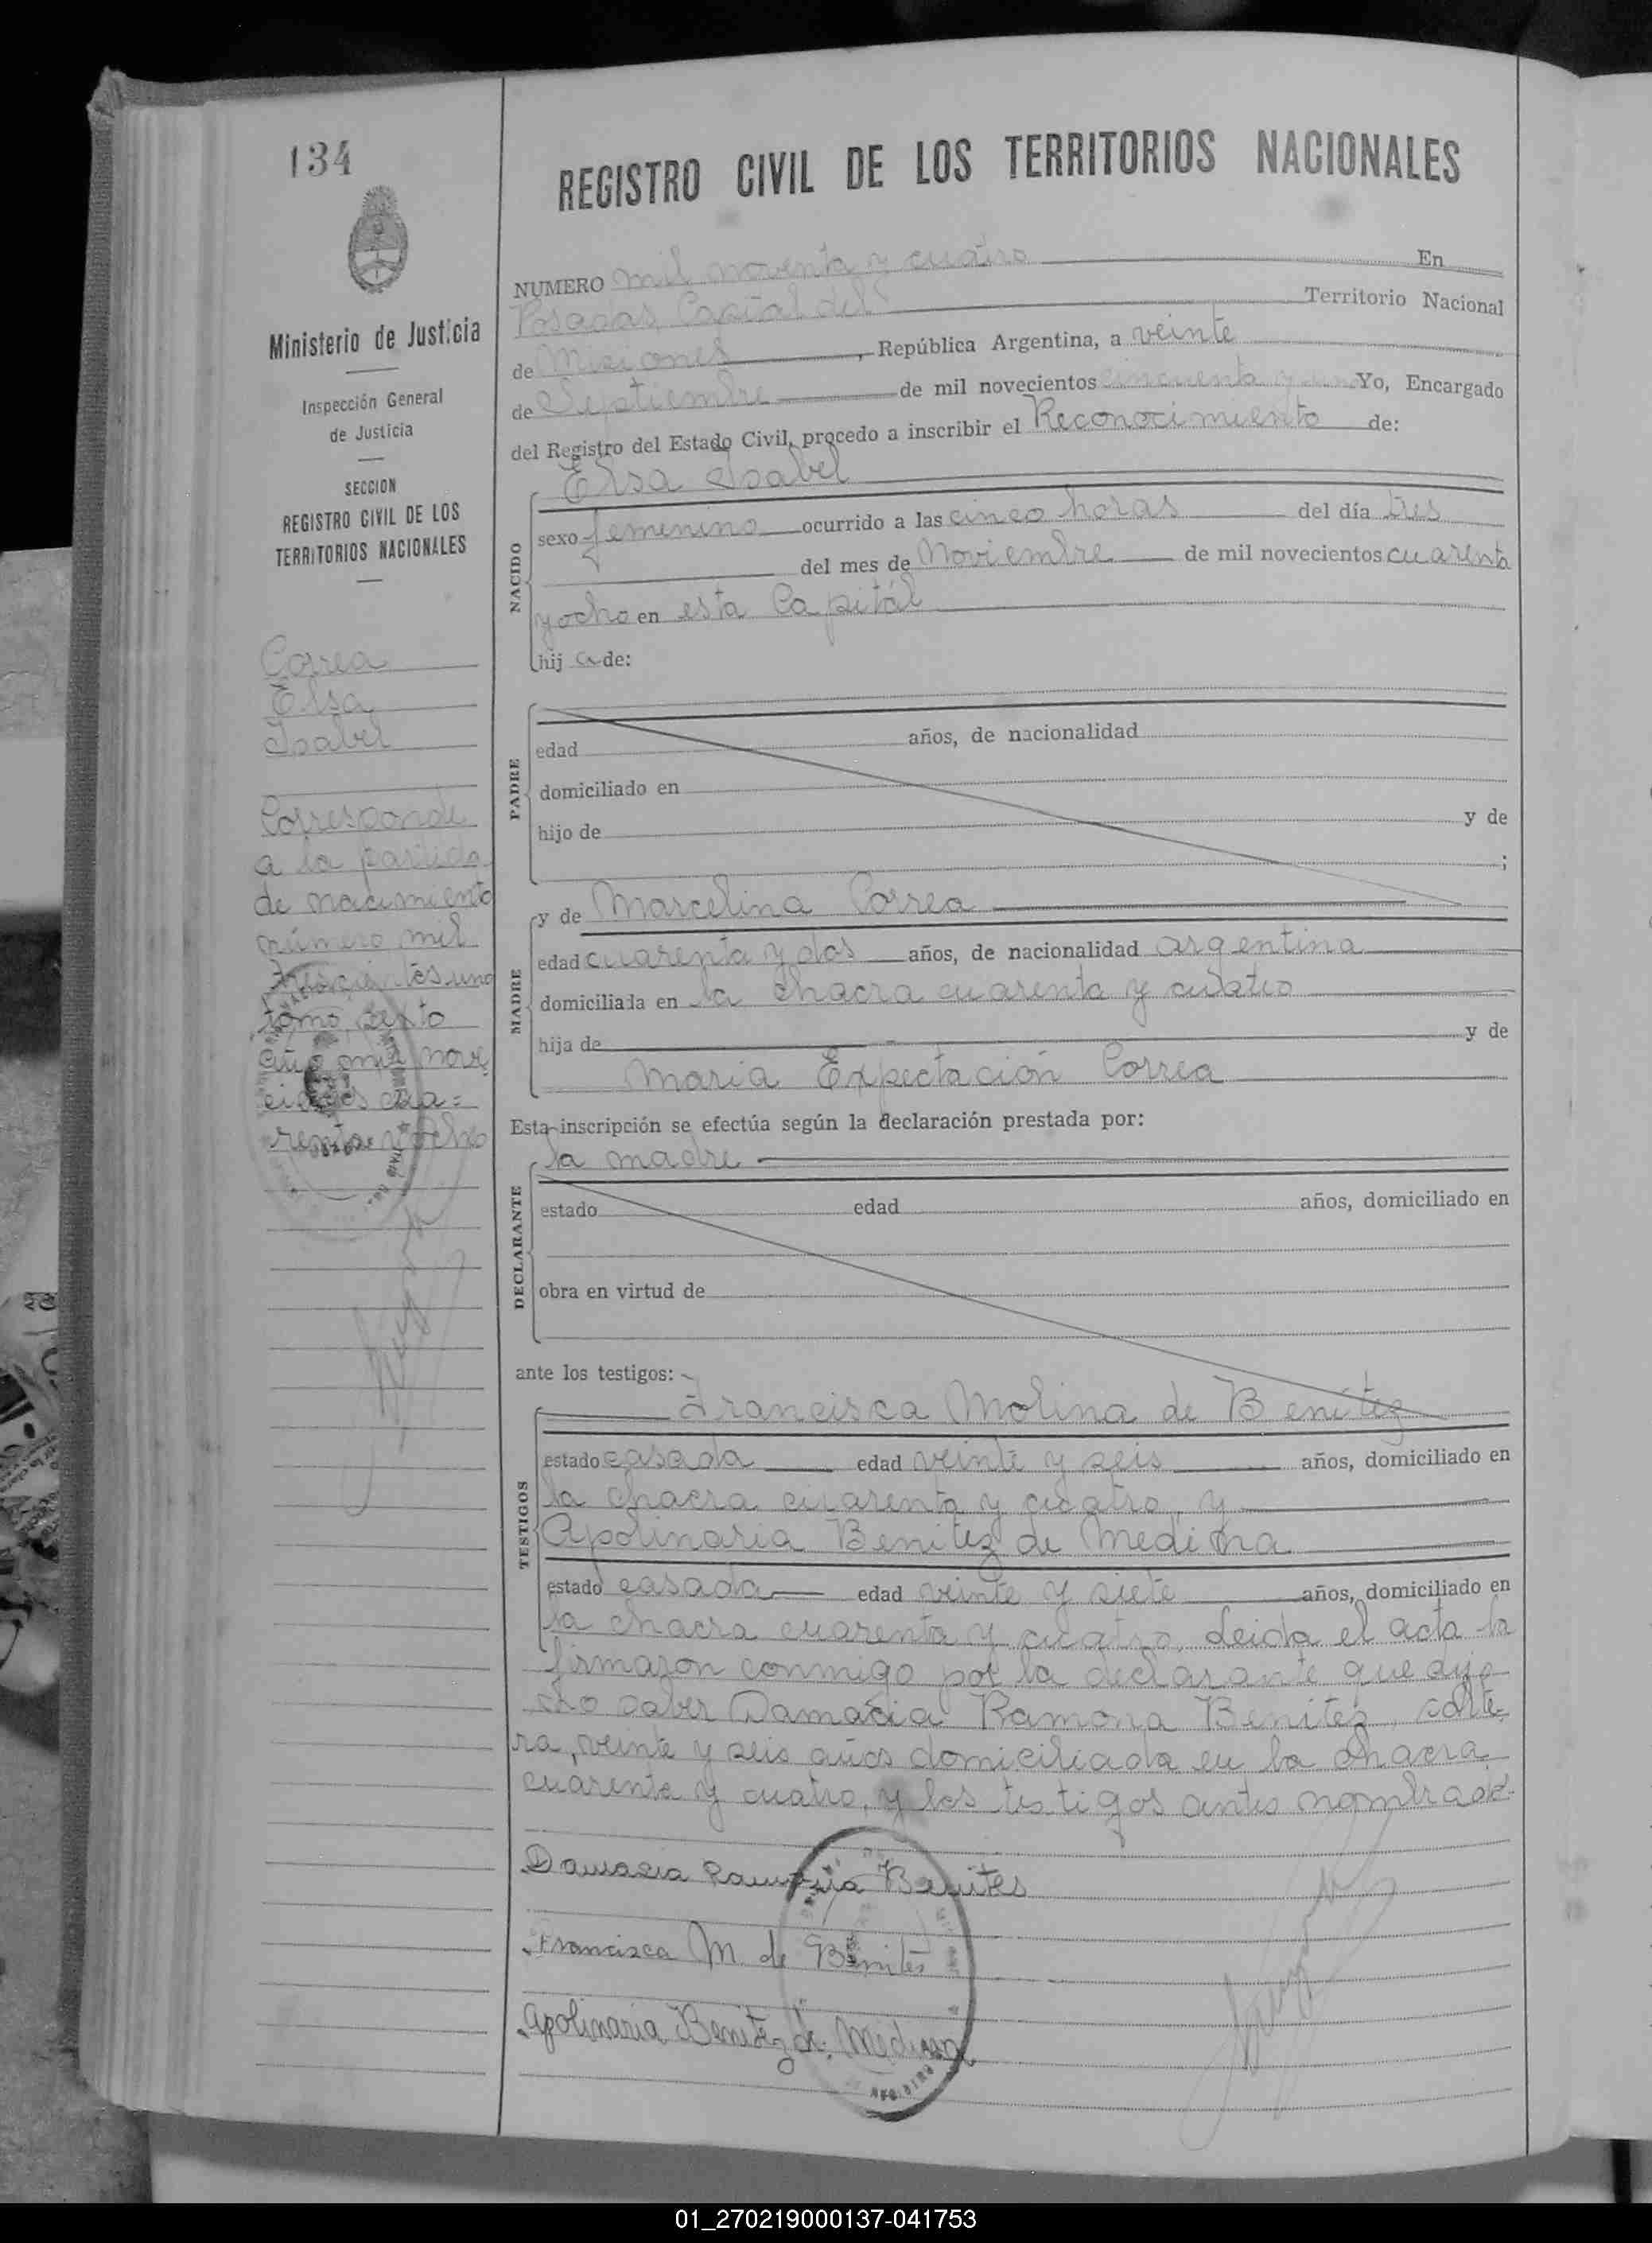 134
Ministerio de Justicia
Inspección General
de Justicia
SECCION
REGISTRO CIVIL DE LOS
TERRITORIOS NACIONALES
Correa
Elsa
Isabel
Corresponde
a la partida
de nacimiento
número mil
trescientos uno
tomo sexto
año mil nove
cientos cua=
renta y ocho
REGISTRO CIVIL DE LOS TERRITORIOS NACIONALES
NUMERO mil noventa y cuatro En
Posadas Capital del Territorio Nacional
de Misiones, República Argentina, a veinte
de Septiembre de mil novecientos cincuenta y uno Yo, Encargado
del Registro del Estado Civil, procedo a inscribir el Reconocimiento de:
NACIDO
Elsa Isabel
sexo femenino ocurrido a las cinco horas del día tres
del mes de Noviembre de mil novecientos cuarenta
y ocho en esta Capitál
hij a de:
PADRE
edad años, de nacionalidad
domiciliado en
hijo de y de
;
MADRE
y de Marcelina Correa
edad cuarenta y dos años, de nacionalidad argentina
domiciliada en la chacra cuarenta y cuatro
hija de y de
Maria Expectación Correa
Esta inscripción se efectúa según la declaración prestada por:
DECLARANTE
la madre
estado edad años, domiciliado en
obra en virtud de
ante los testigos:
TESTIGOS
Francisca Molina de Benítez
estado casada edad veinte y seis años, domiciliado en
la chacra cuarenta y cuatro y
Apolinaria Benitez de Medina
estado casada edad veinte y siete años, domiciliado en
la chacra cuarenta y cuatro. Leida el acta la
firmaron conmigo por la declarante que dijo
no saber Damasia Ramona Benitez, solte
ra, veinte y seis años domiciliada en la chacra
cuarenta y cuatro, y los testigos antes nombrados.
Damasia Ramona Benites
Francisca M. de Benites
Apolinaria Benitez de Medina
01_270219000137-041753